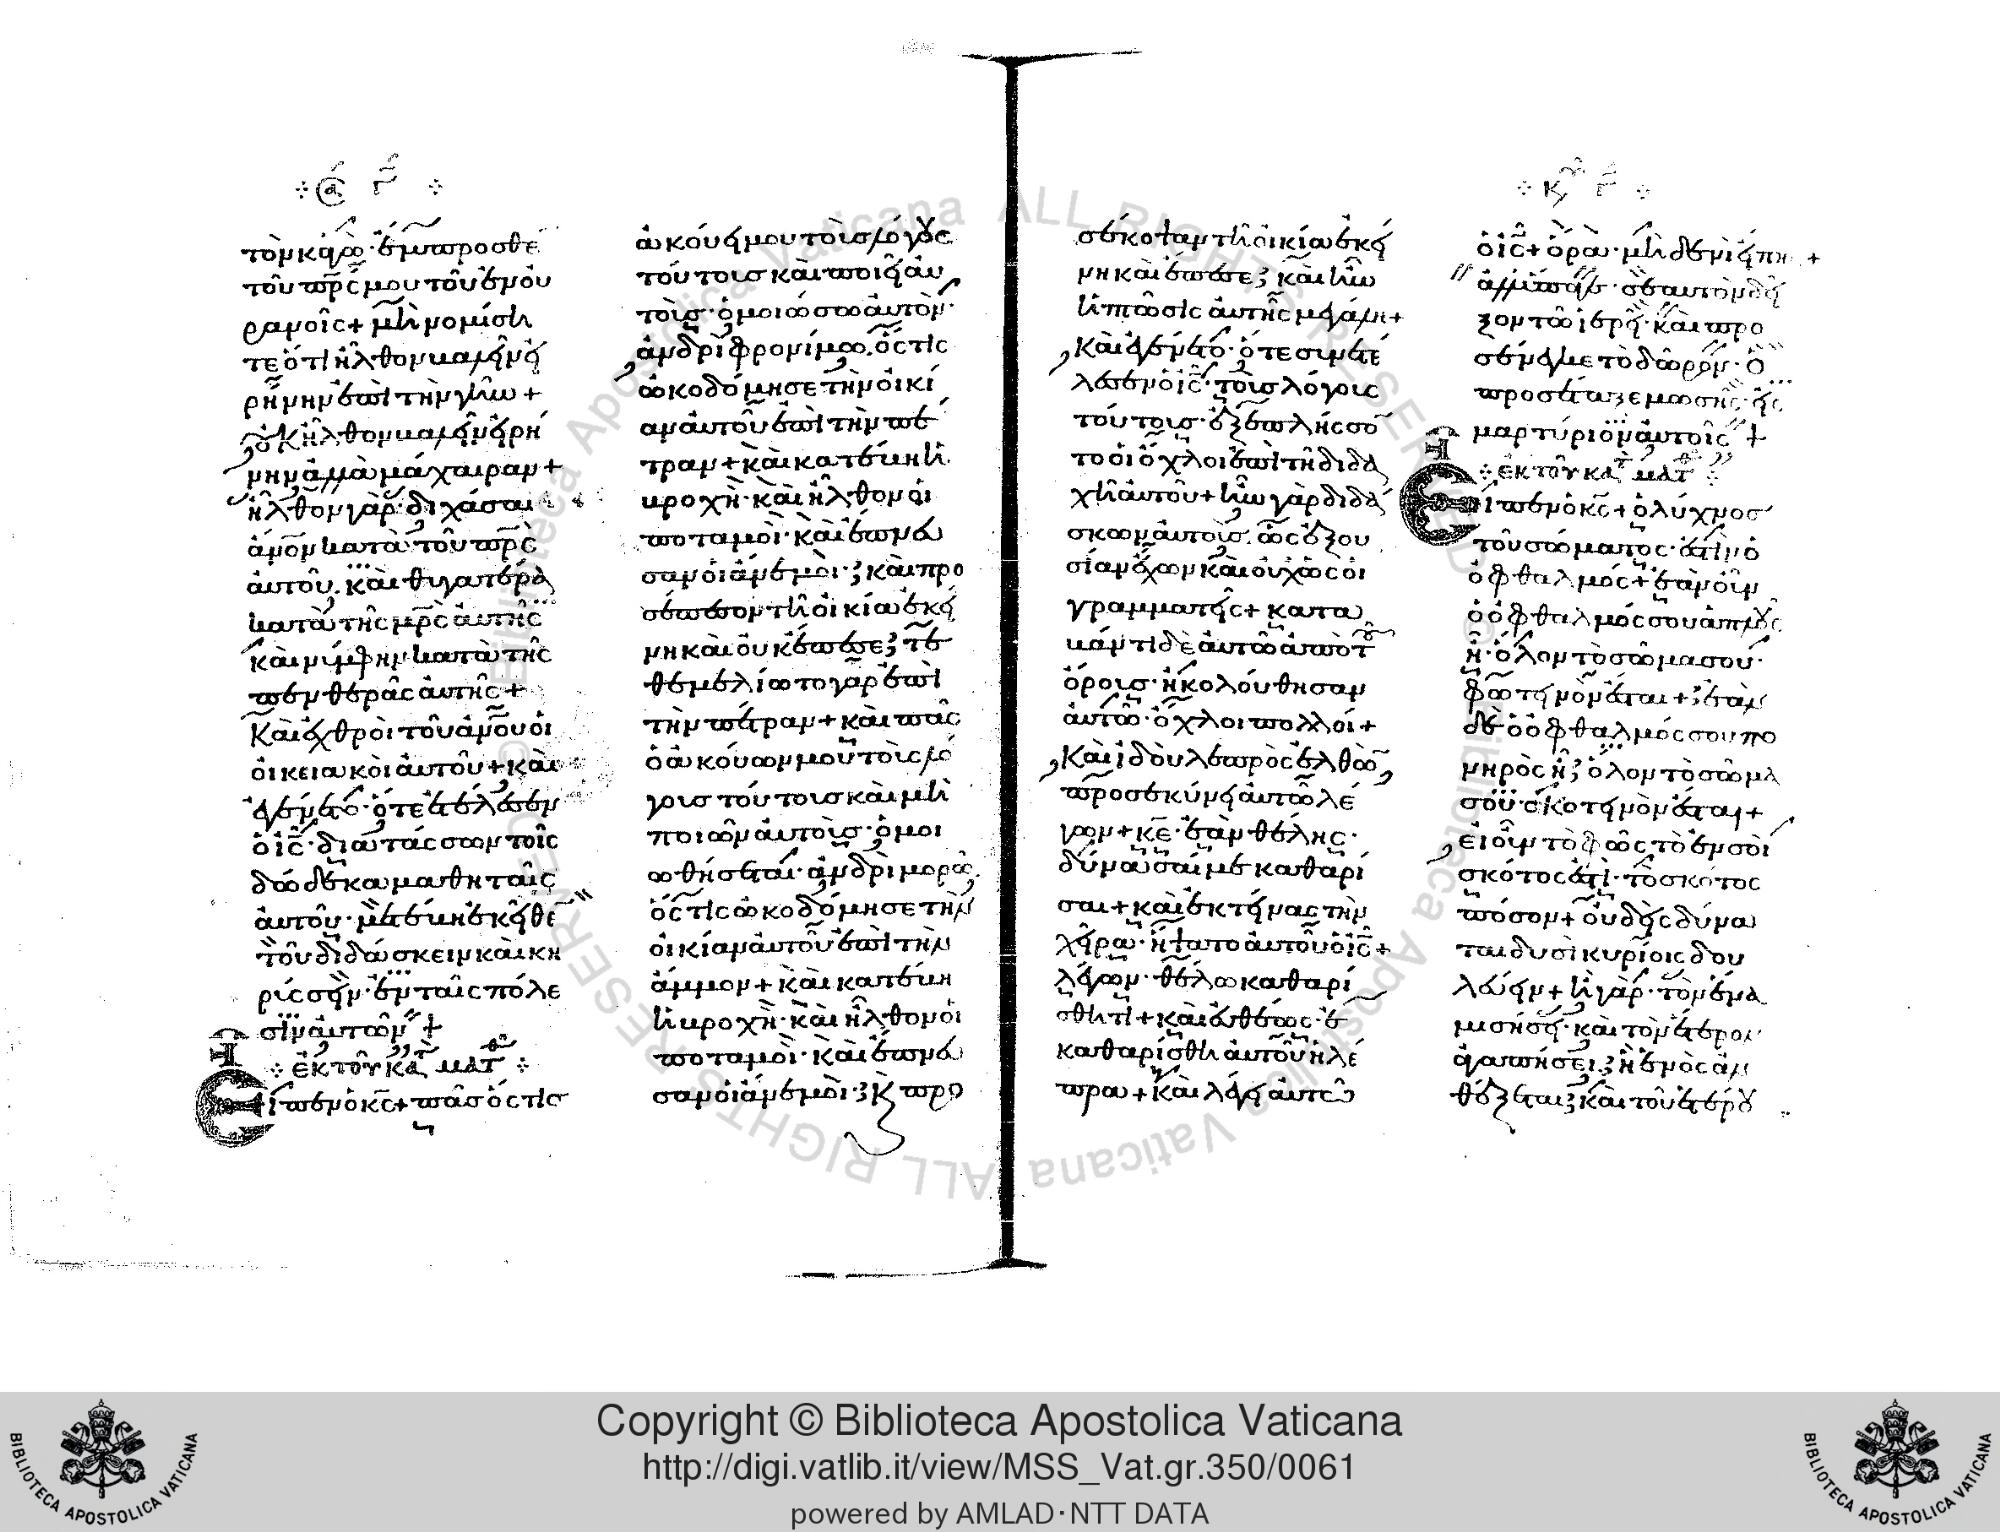 τὸν κἀγὼ· ἔμπροσθε
τοῦ πρς μου τοῦ ἐν οὐ
ρανοῖς+ μὴ νομίση
τε ὅτι ἦλθον βαλεῖν εἰ
ρήνην ἐπὶ τὴν γῆν+
οὐκ ἦλθον βαλεῖν εἰρή
νην ἀλλὰ μάχαιραν+
ἦλθον γὰρ· διχάσαι
ἀνον κατὰ τοῦ πρς
αὐτοῦ. καὶ θυγατέρα
κατὰ τῆς μρς αὐτῆς
καὶ νύμφην κατὰ τῆς
πενθερᾶς αὐτῆς+
Καὶ ἐχθροὶ τοῦ ἀνου οἱ
οἰκειακοὶ αὐτοῦ+ καὶ
ἐγένετο· ὅτε ἐτέλεσεν
ὁ ις· διατάσσων τοῖς
δώδεκα μαθηταῖς
αὐτοῦ· μετέβη ἐκεῖθε
τοῦ διδάσκειν καὶ κη
ρύσσειν· ἐν ταῖς πόλε
σιν αὐτῶν+
ἐκ τοῦ κατ ματθ
Εἶπεν ὁ κς+ πᾶς ὅστις
ἀκούει μου τοὺς λόγους
τούτους καὶ ποιεῖ αὐ
τούς· ὁμοιώσω αὐτὸν·
ἀνδρὶ φρονίμω. ὅστις
ὠκοδόμησε τὴν οἰκί
αν αὐτοῦ ἐπὶ τὴν πέ
τραν+ καὶ κατέβη ἡ
βροχὴ· καὶ ἦλθον οἱ
ποταμοὶ· καὶ ἔπνευ
σαν οἱ ἄνεμοι· καὶ προ
σέπεσον τῆ οἰκία ἐκεί
νη καὶ οὐκ ἔπεσε· τε
θεμελίωτο γὰρ ἐπὶ
τὴν πέτραν+ καὶ πᾶς
ὁ ἀκούων μου τοὺς λό
γους τούτους καὶ μὴ
ποιῶν αὐτοὺς· ὁμοι
ωθήσεται· ἀνδρὶ μορῶ
ὅστις ὠκοδόμησε τὴν
οἰκίαν αὐτοῦ ἐπὶ τὴν
ἄμμον+ καὶ κατέβη
ἡ βροχὴ· καὶ ἦλθον οἱ
ποταμοὶ· καὶ ἔπνευ
σαν οἱ ἄνεμοι· κ προ
σέκοψαν τῆ οἰκία ἐκεί
νη καὶ ἔπεσε· καὶ ἦν
ἡ πτῶσις αὐτῆς μεγάλη+
Καὶ ἐγένετο· ὅτε συνετέ
λεσεν ὁ ις· τοὺς λόγους
τούτους· ἐξεπλήσσον
το οἱ ὄχλοι ἐπὶ τῆ διδα
χῆ αὐτοῦ+ ἦν γὰρ διδά
σκων αὐτοὺς. ὡς ἐξου
σίαν ἔχων καὶ οὐχ ὡς οἱ
γραμματεῖς+ κατα
βάντι δὲ αὐτῶ ἀπὸ τοῦ
ὄρους· ἠκολούθησαν
αὐτῶ· ὄχλοι πολλοί+
Καὶ ἰδοὺ λεπρὸς ἐλθὼν
προσεκύνει αὐτῶ λέ
γων+ κε· ἐὰν θέλης·
δύνασαί με καθαρί
σαι+ καὶ ἐκτείνας τὴν
χεῖρα· ἥψατο αὐτοῦ ὁ ις+
λέγων· θέλω καθαρί
σθητι+ καὶ εὐθέως· ἐ
καθαρίσθη αὐτοῦ ἡ λέ
πρα+ Καὶ λέγει αὐτῶ
ὁ ις+ ὅρα· μὴ δενὶ εἴπης+
ἀλλ' ὕπαγε· σεαυτὸν δεῖ
ξον τῶ ἱερεῖ· καὶ προ
σένεγκε τὸ δῶρον· ὃ
προσέταξε μωσῆς· εἰς
μαρτύριον αὐτοῖς+
ἐκ τοῦ κατ ματθ
Εἶπεν ὁ κς+ ὁ λύχνος
τοῦ σώματος· ἐστὶν ὁ
ὀφθαλμός+ ἐὰν οὖν
ὁ ὀφθαλμός σου ἁπλοῦς
ἦ· ὅλον τὸ σῶμα σου·
φωτεινὸν ἔσται+ ἐὰν
δὲ ὁ ὀφθαλμός σου πο
νηρὸς ἦ· ὅλον τὸ σῶμα
σου σκοτεινὸν ἔσται+
εἰ οὖν τὸ φῶς τὸ ἐν σοὶ
σκότος ἐστὶ· τὸ σκότος
πόσον+ οὐδεὶς δύνα
ται δυσὶ κυρίοις δου
λεύειν+ ἢ γὰρ· τὸν ἕνα
μισήσει· καὶ τὸν ἕτερον
ἀγαπήσει· ἢ ἑνὸς ἀν
θέξεται· καὶ τοῦ ἑτέρου
ALL RIGHTS RESERVED © Biblioteca Apostolica Vaticana
Copyright © Biblioteca Apostolica Vaticana
http://digi.vatlib.it/view/MSS_Vat.gr.350/0061
powered by AMLAD·NTT DATA
BIBLIOTECA APOSTOLICA VATICANA
BIBLIOTECA APOSTOLICA VATICANA